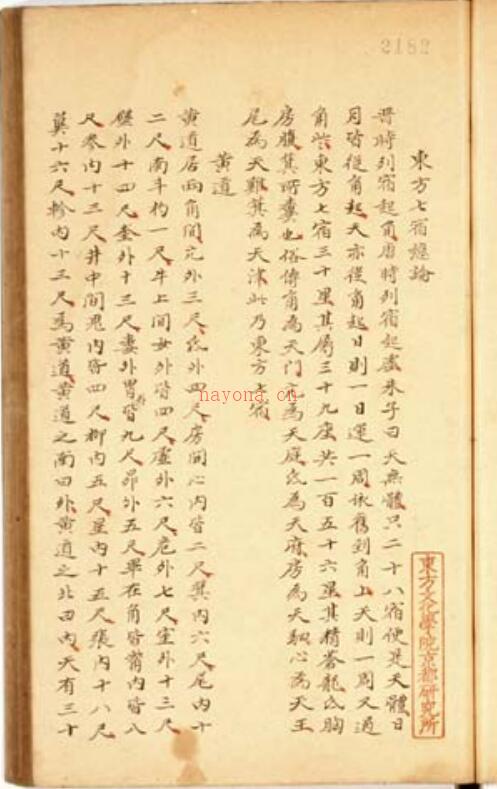 2182
東方七宿總論
晋時列宿起角唐時列宿起虛朱子曰天無體只二十八宿便是天體日
月皆從角起天亦從角起日則一日運一周依舊到角上天則一周又過
角些東方七宿三十星其屬三十九座共一百五十六星其精蒼龍氐胸
房腹箕所糞也俗傳角為天門亢為天庭氐為天府房為天駟心為天王
尾為天雞箕為天津此乃東方七宿
黄道
黄道居兩角間亢外三尺氐外四尺房間心內皆二尺箕內六尺尾內十
二尺南斗杓一尺牛上間女外皆四尺虛外六尺危外七尺室外十三尺
壁外十四尺奎外十三尺婁外胃皆九尺昴外五尺畢在角皆觜內皆八
尺參內十三尺井中間鬼內皆四尺柳內五尺星內十五尺張內十八尺
翼十六尺軫內十三尺為黄道黄道之南曰外黄道之北曰內天有三十
東方文化學院京都研究所
nayona.cn